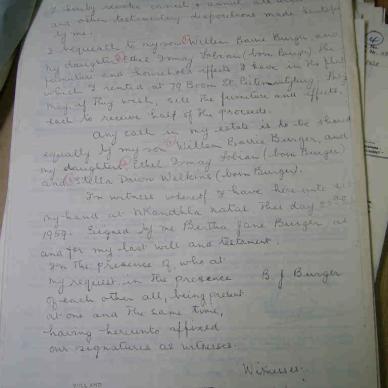 I hereby revoke cancel & annul all
and other testamentary dispositions made heretofore
by me.
I bequeath to my son William Barrie Burger and
my daughter Ethel Ismay (born Burger) the
furniture and household effects I have in the flat
which I rented at 79 Boom St. Pietermaritzburg. They
may, if they wish, sell the furniture and effects,
each to receive half of the proceeds.
Any cash in my estate is to be shared
equally by my son William Barrie Burger, and
my daughters Ethel Ismay (born Burger)
and Stella Dawn Watkins (born Burger).
In witness whereof I have hereunto set
my hand at Nkandhla Natal this day
1959. Signed by me Bertha Jane Burger as
and for my last will and testament.
In the presence of, who at
my request in the presence B J Burger
of each other all, being present
at one and the same time,
having hereunto affixed
our signatures as witnesses.
Witnesses.